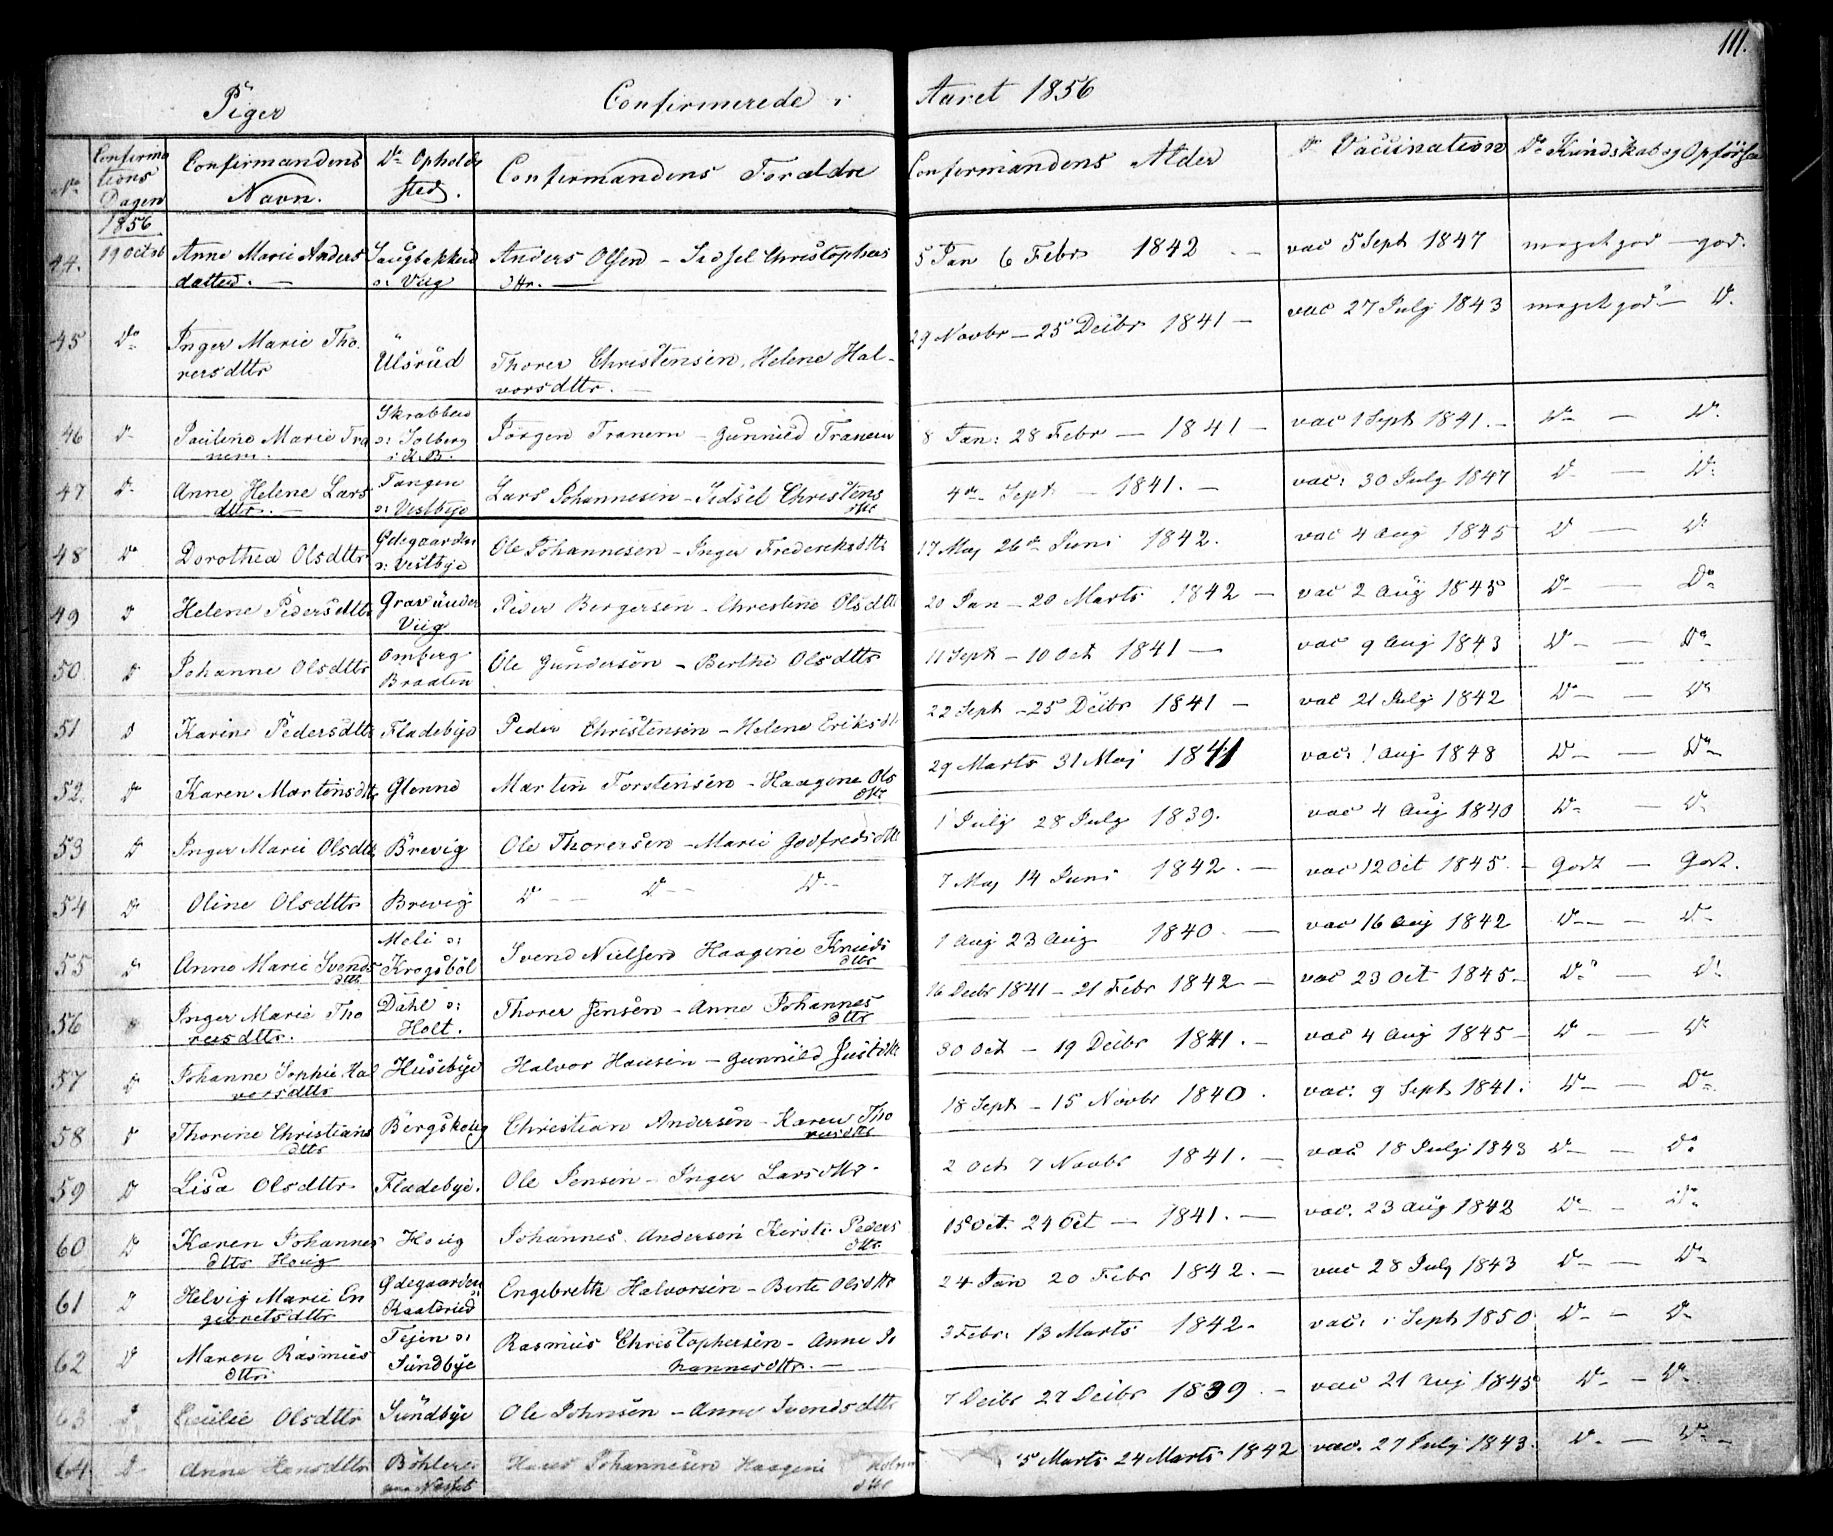 111.
Piger Confirmerede i Aaret 1856
No Confirmations Dagen Confirmandens Navn. Do Opholdssted. Confirmandens Forældre Confirmandens Alder Do Vaccination Do Kundskab og Opførsel
1856
44. 19 Octob Anne Marie Anders Saugbakken Anders Olsen - Sidsel Christophers 5 Jan 6 Febr 1842 vac 5 Sept 1847 meget god - god.
datter. o: Viig dttr.
45 Do Inger Marie Tho Ulsrud Thorer Christensen, Helene Hal- 29 Novbr - 25 Decbr 1841 - vac 27 July 1843 meget god - Do
rersdttr vorsdttr.
46 Do Pauline Marie Tra Skrabberud Jørgen Tranem - Gunnild Tranem 8 Jan: 28 Febr - 1841 - vac 1 Sept 1841. - Do - Do
nem. o: Solberg
i K.B.
47 Do Anne Helene Lars Tangen Lars Johannesen - Sidsel Christens 4de Sept - 1841. - vac: 30 July 1847 Do - Do
dttr. o: Vestbye dttr
48 Do Dorothea Olsdttr Ødegaarden Ole Johannesen - Inger Frederiksdttr 17 Maj 26de Juni 1842. vac 4 Aug 1845 Do - Do
o: Vestbye
49 Do Helene Pedersdttr Grav under Peder Bergersen - Christine Olsdttr 20 Jan - 20 Marts 1842 - vac 2 Aug 1845 Do - Do
Viig
50 Do Johanne Olsdttr Omberg Ole Gundersen - Berthe Olsdttr 11 Sept - 10 Oct 1841 - vac 9 Aug 1843 Do - Do
Braaten
51 Do Karine Pedersdttr Fladebye Peder Christensen - Helene Eriksdtt 22 Sept - 25 Decbr 1841 - vac 21 July 1842 Do - Do
52. Do Karen Martinsdttr Glenne Martin Torstensen - Haagine Ols 29 Marts 31 Maj 1841 vac: 1 Aug 1848 Do - Do
dttr
53 Do Inger Marie Olsdttr Brevig Ole Thorersen - Marie Godfredsdttr 1 July 28 July 1839. vac 4 Aug 1840 Do - Do
54 Do Oline Olsdttr Brevig Do - - Do - - Do - - 7 Maj 14 Juni 1842. - vac 12 Oct 1845. - Godt - Godt.
55 Do Anne Marie Svends Meli o: Svend Nielsen Haagine Knuds 1 Aug 23 Aug 1840. - vac 16 Aug 1842 Do - Do
dttr Krogsbøl dttr
56 Do Inger Marie Tho Dahl o: Thorer Jensen - Anne Johannes 16 Decbr 1841 - 21 Febr 1842 - vac 23 Oct 1845 - Do - Do
rersdttr. Holt. dttr
57 Do Johanne Sophie Hal Husebye Halvor Hansen - Gunnild 30 Oct - 19 Decbr 1841. - vac 4 Aug 1845 - Do - Do
vorsdttr
58 Do Thorine Christians Bergskoug Christian Andersen - Karen Tho 18 Sept - 15 Novbr 1840. vac: 9 Sept 1841. Do - Do
dttr rersdttr
59 Do Lisa Olsdttr Fladebye. Ole Jensen - Inger Larsdttr - 2 Oct 7 Novbr 1841. - vac 18 July 1843 Do - Do
60 Do Karen Johannes Houg Johannes Andersen Kersti Peders 15 Oct. 24 Oct - 1841. - vac. 23 Aug 1842 Do - Do
dttr Houg dttr
61 Do Helvig Marie En Ødegaarden Engebreth Halvorsen - Berte Olsdttr 24 Jan 20 Febr 1842. - vac 28 July 1843 Do - Do
gebretsdttr o: Kaaterud
62 Do Maren Rasmus Tejen o: Rasmus Christophersen - Anne Jo 3 Febr: 13 Marts 1842. vac: 1 Sept 1850 Do - Do
dttr Sundbye hannesdttr. -
63 Do Olsdttr Sundbye Ole Johnsen - Anne Svendsdttr 7 Decbr 27 Decbr 1839. - vac 21 Aug 1845 Do - Do
64 Do Anne Hansdttr Bøhler Hans Johannesen Haagine 5 Marts 24 Marts 1842 vac. 27 July 1843. Do - Do -
Næsset dttr